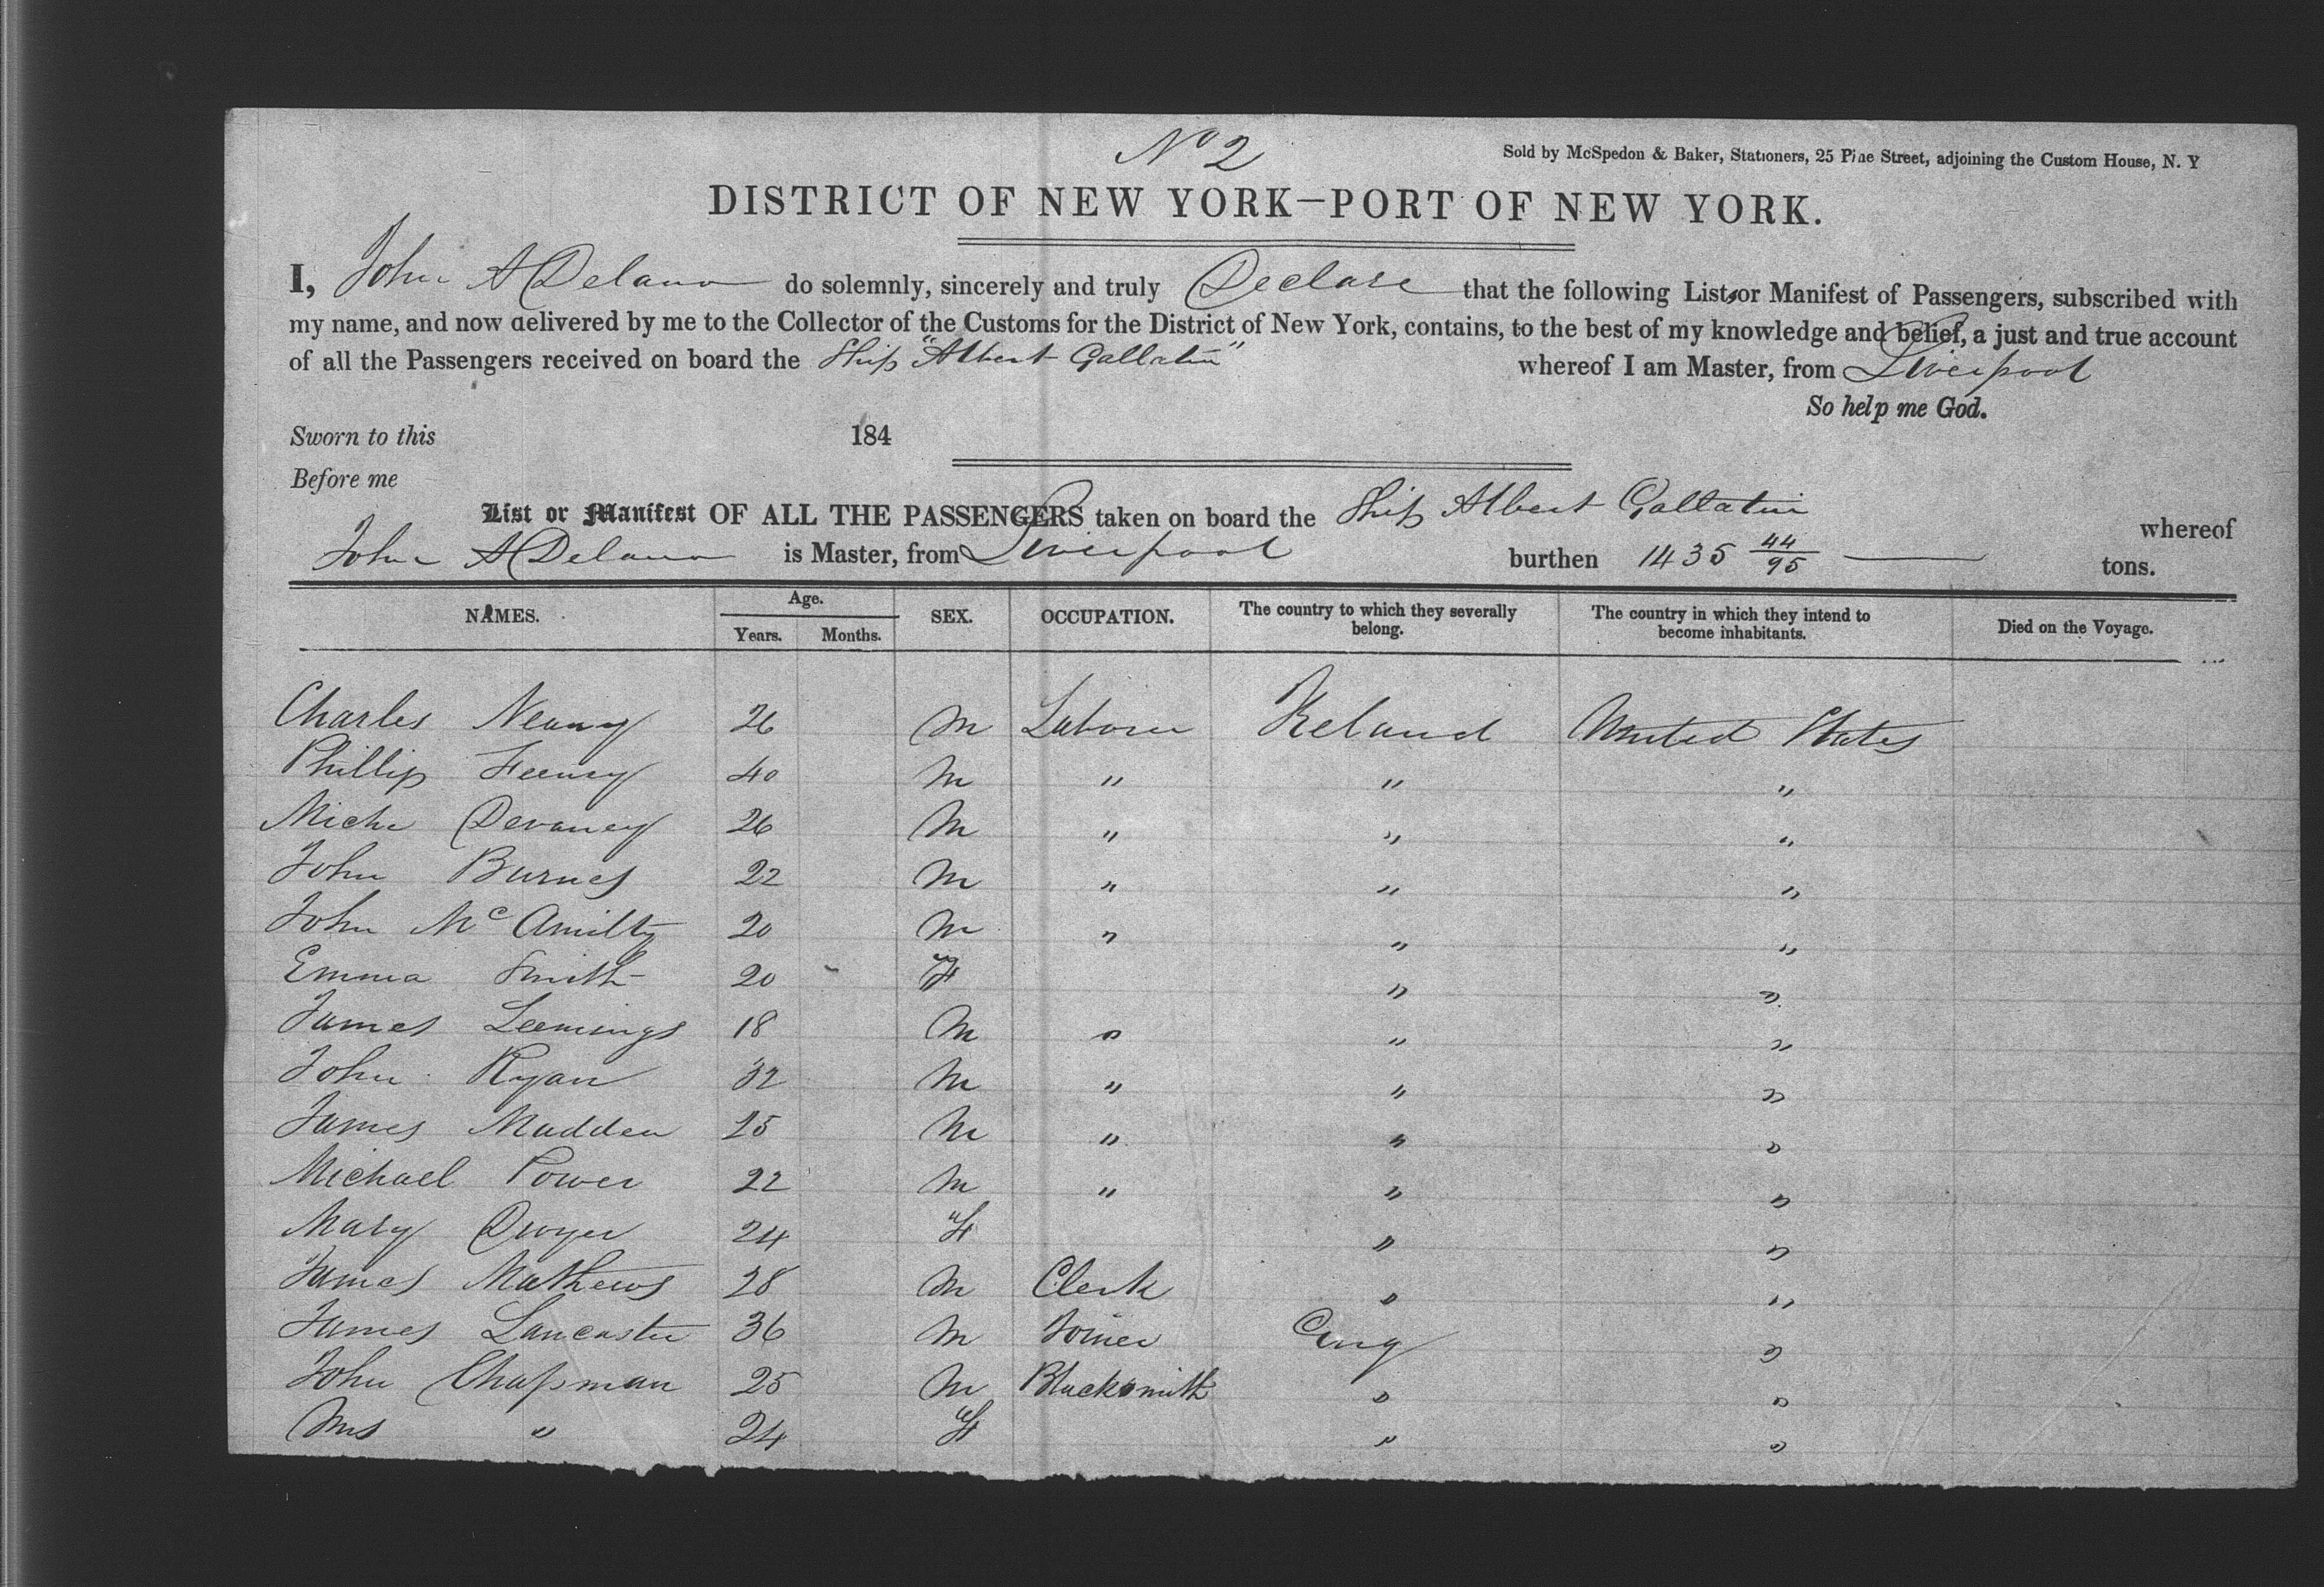 No 2
Sold by McSpedon & Baker, Stationers, 25 Pine Street, adjoining the Custom House, N. Y
DISTRICT OF NEW YORK—PORT OF NEW YORK.
I, John A Delano do solemnly, sincerely and truly Declare that the following List, or Manifest of Passengers, subscribed with
my name, and now delivered by me to the Collector of the Customs for the District of New York, contains, to the best of my knowledge and belief, a just and true account
of all the Passengers received on board the Ship "Albert Gallatin" whereof I am Master, from Liverpool
So help me God.
Sworn to this 184
Before me
List or Manifest OF ALL THE PASSENGERS taken on board the Ship Albert Gallatin whereof
John A Delano is Master, from Liverpool burthen 1435 44/95 tons.
NAMES. Age. Years. Months. SEX. OCCUPATION. The country to which they severally belong. The country in which they intend to become inhabitants. Died on the Voyage.
Charles 26 M Laborer Ireland United States
Phillip Feeney 40 M " " "
Miche Devaney 26 M " " "
John Burnes 22 M " " "
John Mc Amilty 20 M " " "
Emma Smith 20 F " "
James Leemings 18 M " " "
John Ryan 32 M " " "
James Madden 25 M " " "
Michael Power 22 M " " "
Mary Dwyer 24 F " "
James Mathews 28 M Clerk " "
James Lancaster 36 M Joiner Eng "
John Chapman 25 M Blacksmith " "
Mrs " 24 F " "